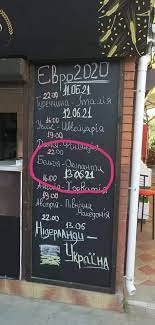 Євро2020
22:00 11.06.21
Туреччина-Італія
12.06.21
Уельс-Швейцарія
19:00
Данія-Фінляндія
22:00
Бельгія-Окупанти
16:00 13.06.21
Англія-Хорватія
19:00
Австрія-Північна
Македонія
22:00 13.06
Нідерланди-
Україна